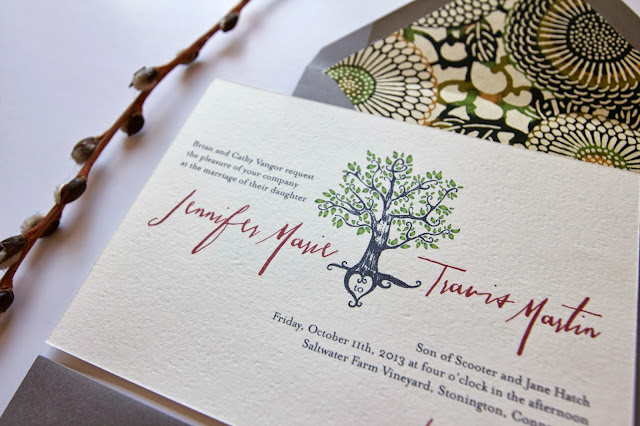 Brian and Cathy Vangor request
the pleasure of your company
at the marriage of their daughter
Jennifer Marie
10
Travis Martin
Son of Scooter and Jane Hatch
Friday, October 11th, 2013 at four o'clock in the afternoon
Saltwater Farm Vineyard, Stonington, Conn